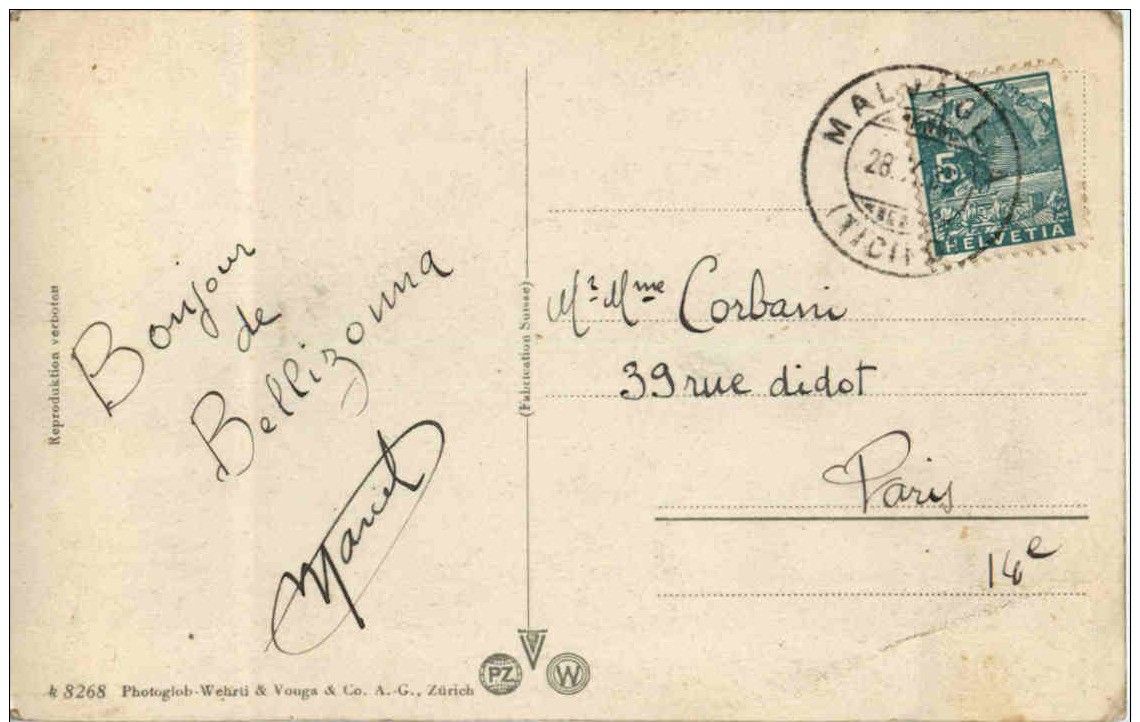 Bonjour
de
Bellizonna
Marcel
Reproduktion verboten
(Fabrication Suisse)
k 8268 Photoglob-Wehrli & Vouga & Co. A.-G., Zürich
PZ
V
W
28.
5
HELVETIA
Mr Mme Corbani
39 rue didot
Paris
14e